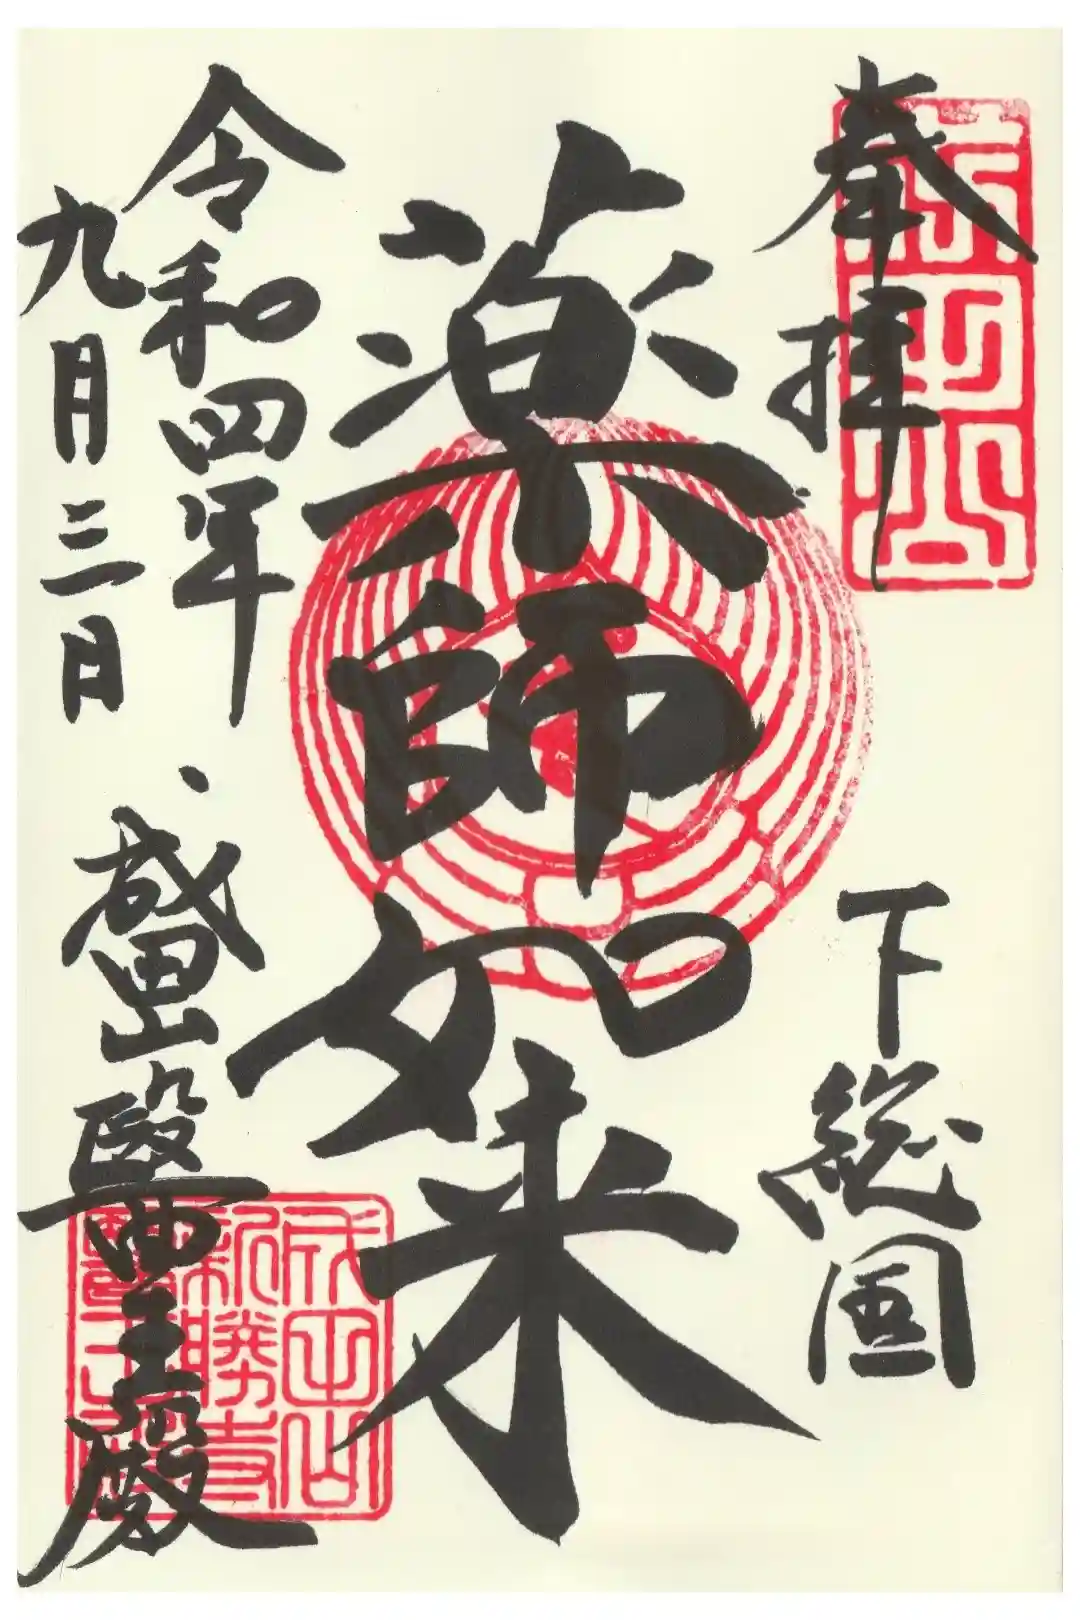 奉拝
成田山
下総国
薬師如来
令和四年
九月三日
成田山醫王殿
成田山
新勝寺
醫王殿